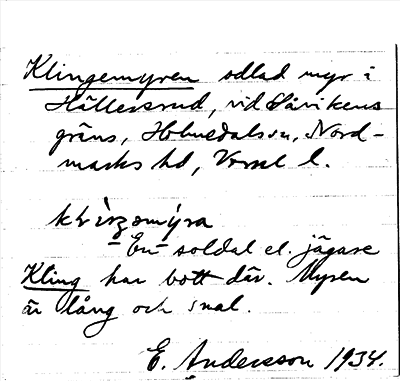 Klingemyren odlad myr i
Hällesrud, vid Såvikens
gräns, Holmedals sn, Nord-
marks hd, Vrml l.
En soldat el. jägare
Kling har bott där. Myren
är lång och smal.
E. Andersson 1934.